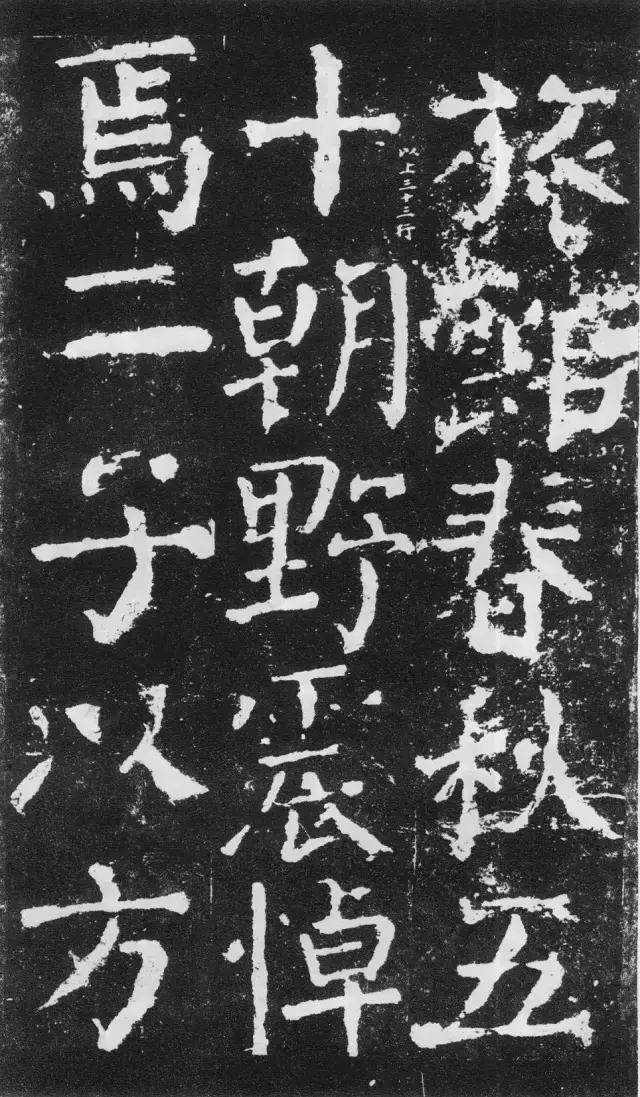 旅館春秋五
十朝野震悼
焉二子以方
以上三十二行